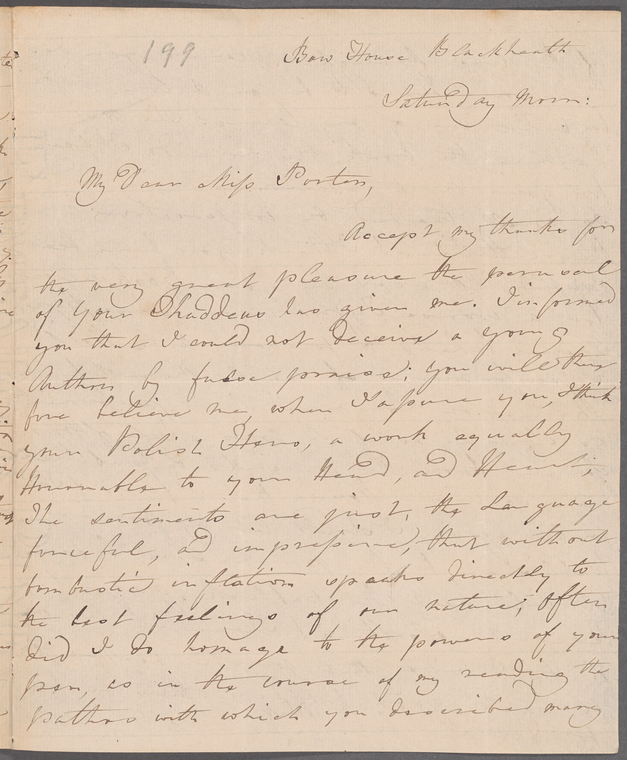 199
Bow House Blackheath
Saturday Morn:
My Dear Miss Porter,
Accept my thanks for
the very great pleasure the perusal
of your Thaddeus has given me. I informed
you that I could not deceive a young
Author by false praise; you will there
fore believe me, when I assure you, I think
your Polish Hero, a work equally
Honourable to your Head, and Heart;
The sentiments are just, the Language
forceful, and impressive, that without
bombastic inflation speaks directly to
the best feelings of our nature; often
did I do homage to the powers of your
pen, as in the course of my reading the
pathos with which you described many